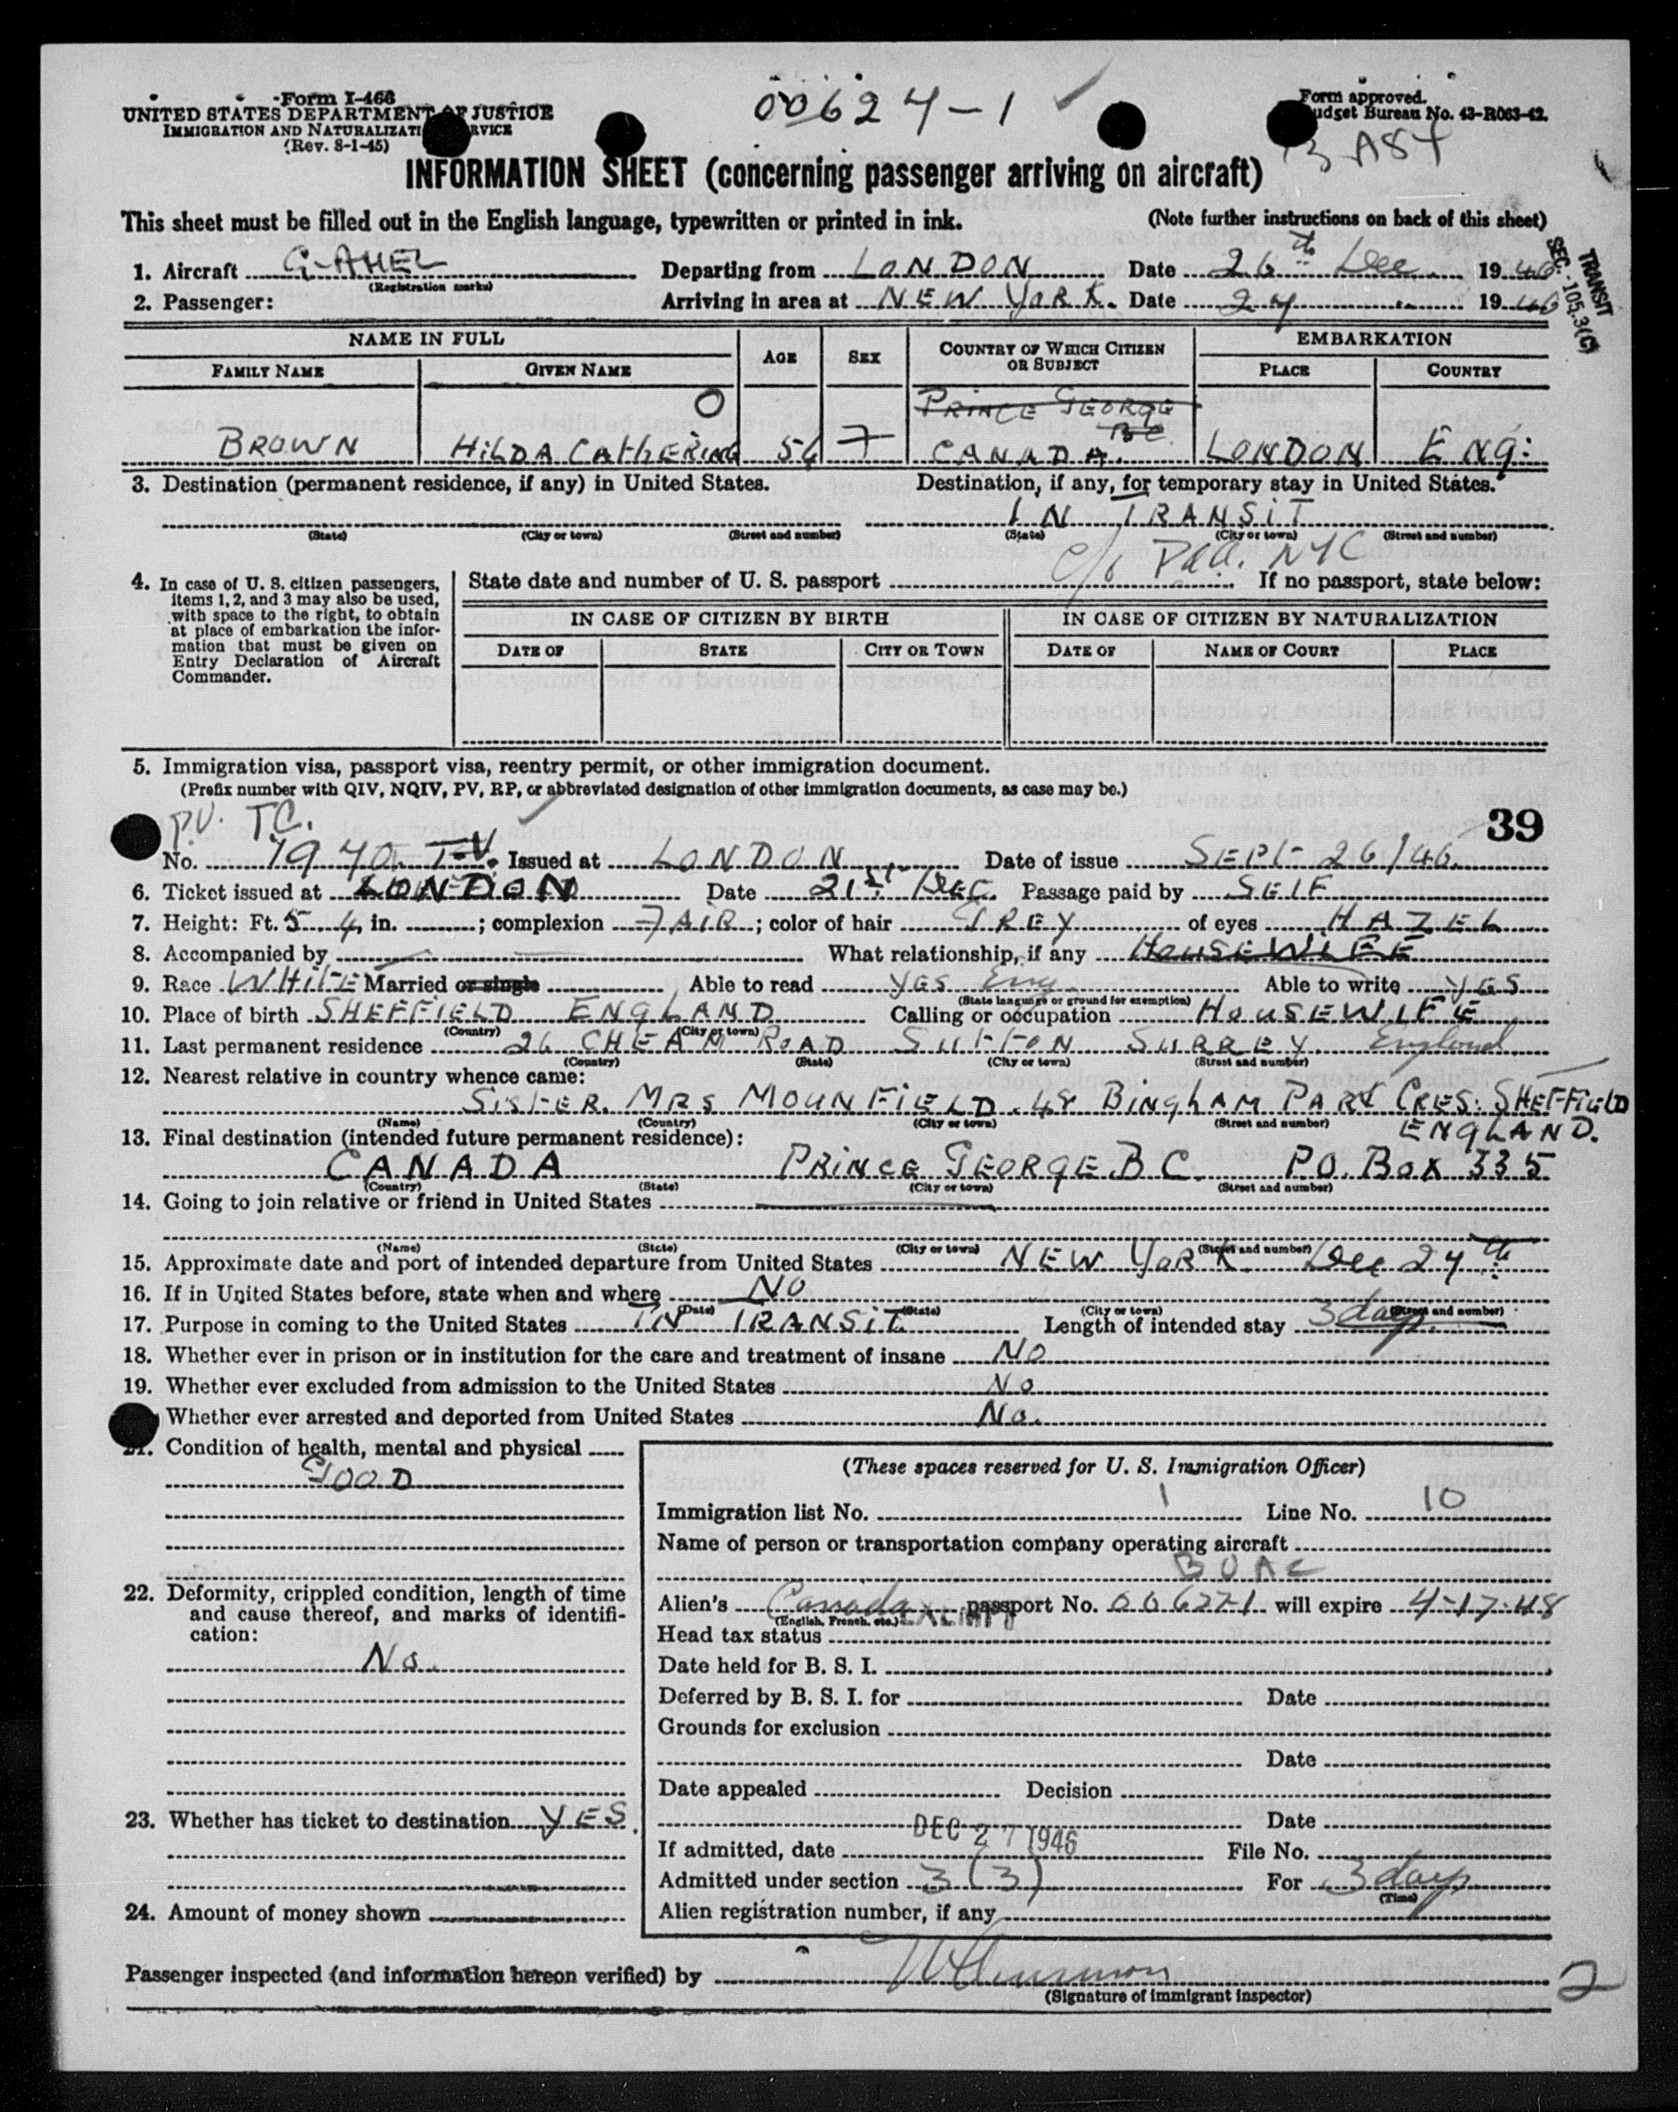 Form I-466
UNITED STATES DEPARTMENT OF JUSTICE
IMMIGRATION AND NATURALIZATI RVICE
(Rev. 8-1-45)
00624-1
Form approved.
udget Bureau No. 43-R063-42.
INFORMATION SHEET (concerning passenger arriving on aircraft)
This sheet must be filled out in the English language, typewritten or printed in ink. (Note further instructions on back of this sheet)
TRANSIT
SEC.-105.3(C)
1. Aircraft G-AHEL Departing from LONDON Date 26th Dec. 1946
(Registration marks)
2. Passenger: Arriving in area at NEW YORK. Date 27 .. 1946
NAME IN FULL AGE SEX COUNTRY OF WHICH CITIZEN OR SUBJECT EMBARKATION
FAMILY NAME GIVEN NAME PLACE COUNTRY
O PRINCE GEORGE
BC
BROWN HILDA CATHERINE 54 F CANADA. LONDON ENG:
3. Destination (permanent residence, if any) in United States. Destination, if any, for temporary stay in United States.
IN TRANSIT
(State) (City or town) (Street and number) (State) (City or town) (Street and number)
c/o Paa. NYC
4. In case of U. S. citizen passengers, items 1, 2, and 3 may also be used, with space to the right, to obtain at place of embarkation the information that must be given on Entry Declaration of Aircraft Commander.
State date and number of U. S. passport If no passport, state below:
IN CASE OF CITIZEN BY BIRTH IN CASE OF CITIZEN BY NATURALIZATION
DATE OF STATE CITY OR TOWN DATE OF NAME OF COURT PLACE
5. Immigration visa, passport visa, reentry permit, or other immigration document.
(Prefix number with QIV, NQIV, PV, RP, or abbreviated designation of other immigration documents, as case may be.)
P.V. TC. 39
No. 1940 T.V. Issued at LONDON Date of issue SEPT 26/46.
6. Ticket issued at LONDON Date 21st DEC. Passage paid by SELF
7. Height: Ft. 5 4 in. ; complexion FAIR ; color of hair GREY of eyes HAZEL
8. Accompanied by What relationship, if any HOUSEWIFE
9. Race WHITE Married or single Able to read YES Eng. Able to write YES
(State language or ground for exemption)
10. Place of birth SHEFFIELD ENGLAND Calling or occupation HOUSEWIFE
(Country) (City or town)
11. Last permanent residence 26 CHEAM ROAD SUTTON SURREY. England
(Country) (State) (City or town) (Street and number)
12. Nearest relative in country whence came:
SISTER. MRS MOUNFIELD. 48 BINGHAM PARK CRES: SHEFFIELD
(Name) (Country) (City or town) (Street and number) ENGLAND.
13. Final destination (intended future permanent residence):
CANADA PRINCE GEORGE B C. P.O. BOX 335
(Country) (State) (City or town) (Street and number)
14. Going to join relative or friend in United States
(Name) (State) (City or town) (Street and number)
15. Approximate date and port of intended departure from United States NEW YORK. Dec 27th
16. If in United States before, state when and where NO
(Date) (State) (City or town) (Street and number)
17. Purpose in coming to the United States IN TRANSIT Length of intended stay 3 days
18. Whether ever in prison or in institution for the care and treatment of insane NO
19. Whether ever excluded from admission to the United States No
Whether ever arrested and deported from United States No.
21. Condition of health, mental and physical
GOOD
22. Deformity, crippled condition, length of time and cause thereof, and marks of identification:
No.
23. Whether has ticket to destination YES.
24. Amount of money shown
(These spaces reserved for U. S. Immigration Officer)
Immigration list No. 1 Line No. 10
Name of person or transportation company operating aircraft
BOAC
Alien's Canada passport No. 006271 will expire 4-17-48
(English, French, etc.) EXEMPT
Head tax status
Date held for B. S. I.
Deferred by B. S. I. for Date
Grounds for exclusion
Date
Date appealed Decision
Date
If admitted, date DEC 27 1946 File No.
Admitted under section 3 (3) For 3 days
(Time)
Alien registration number, if any
Passenger inspected (and information hereon verified) by
(Signature of immigrant inspector)
2